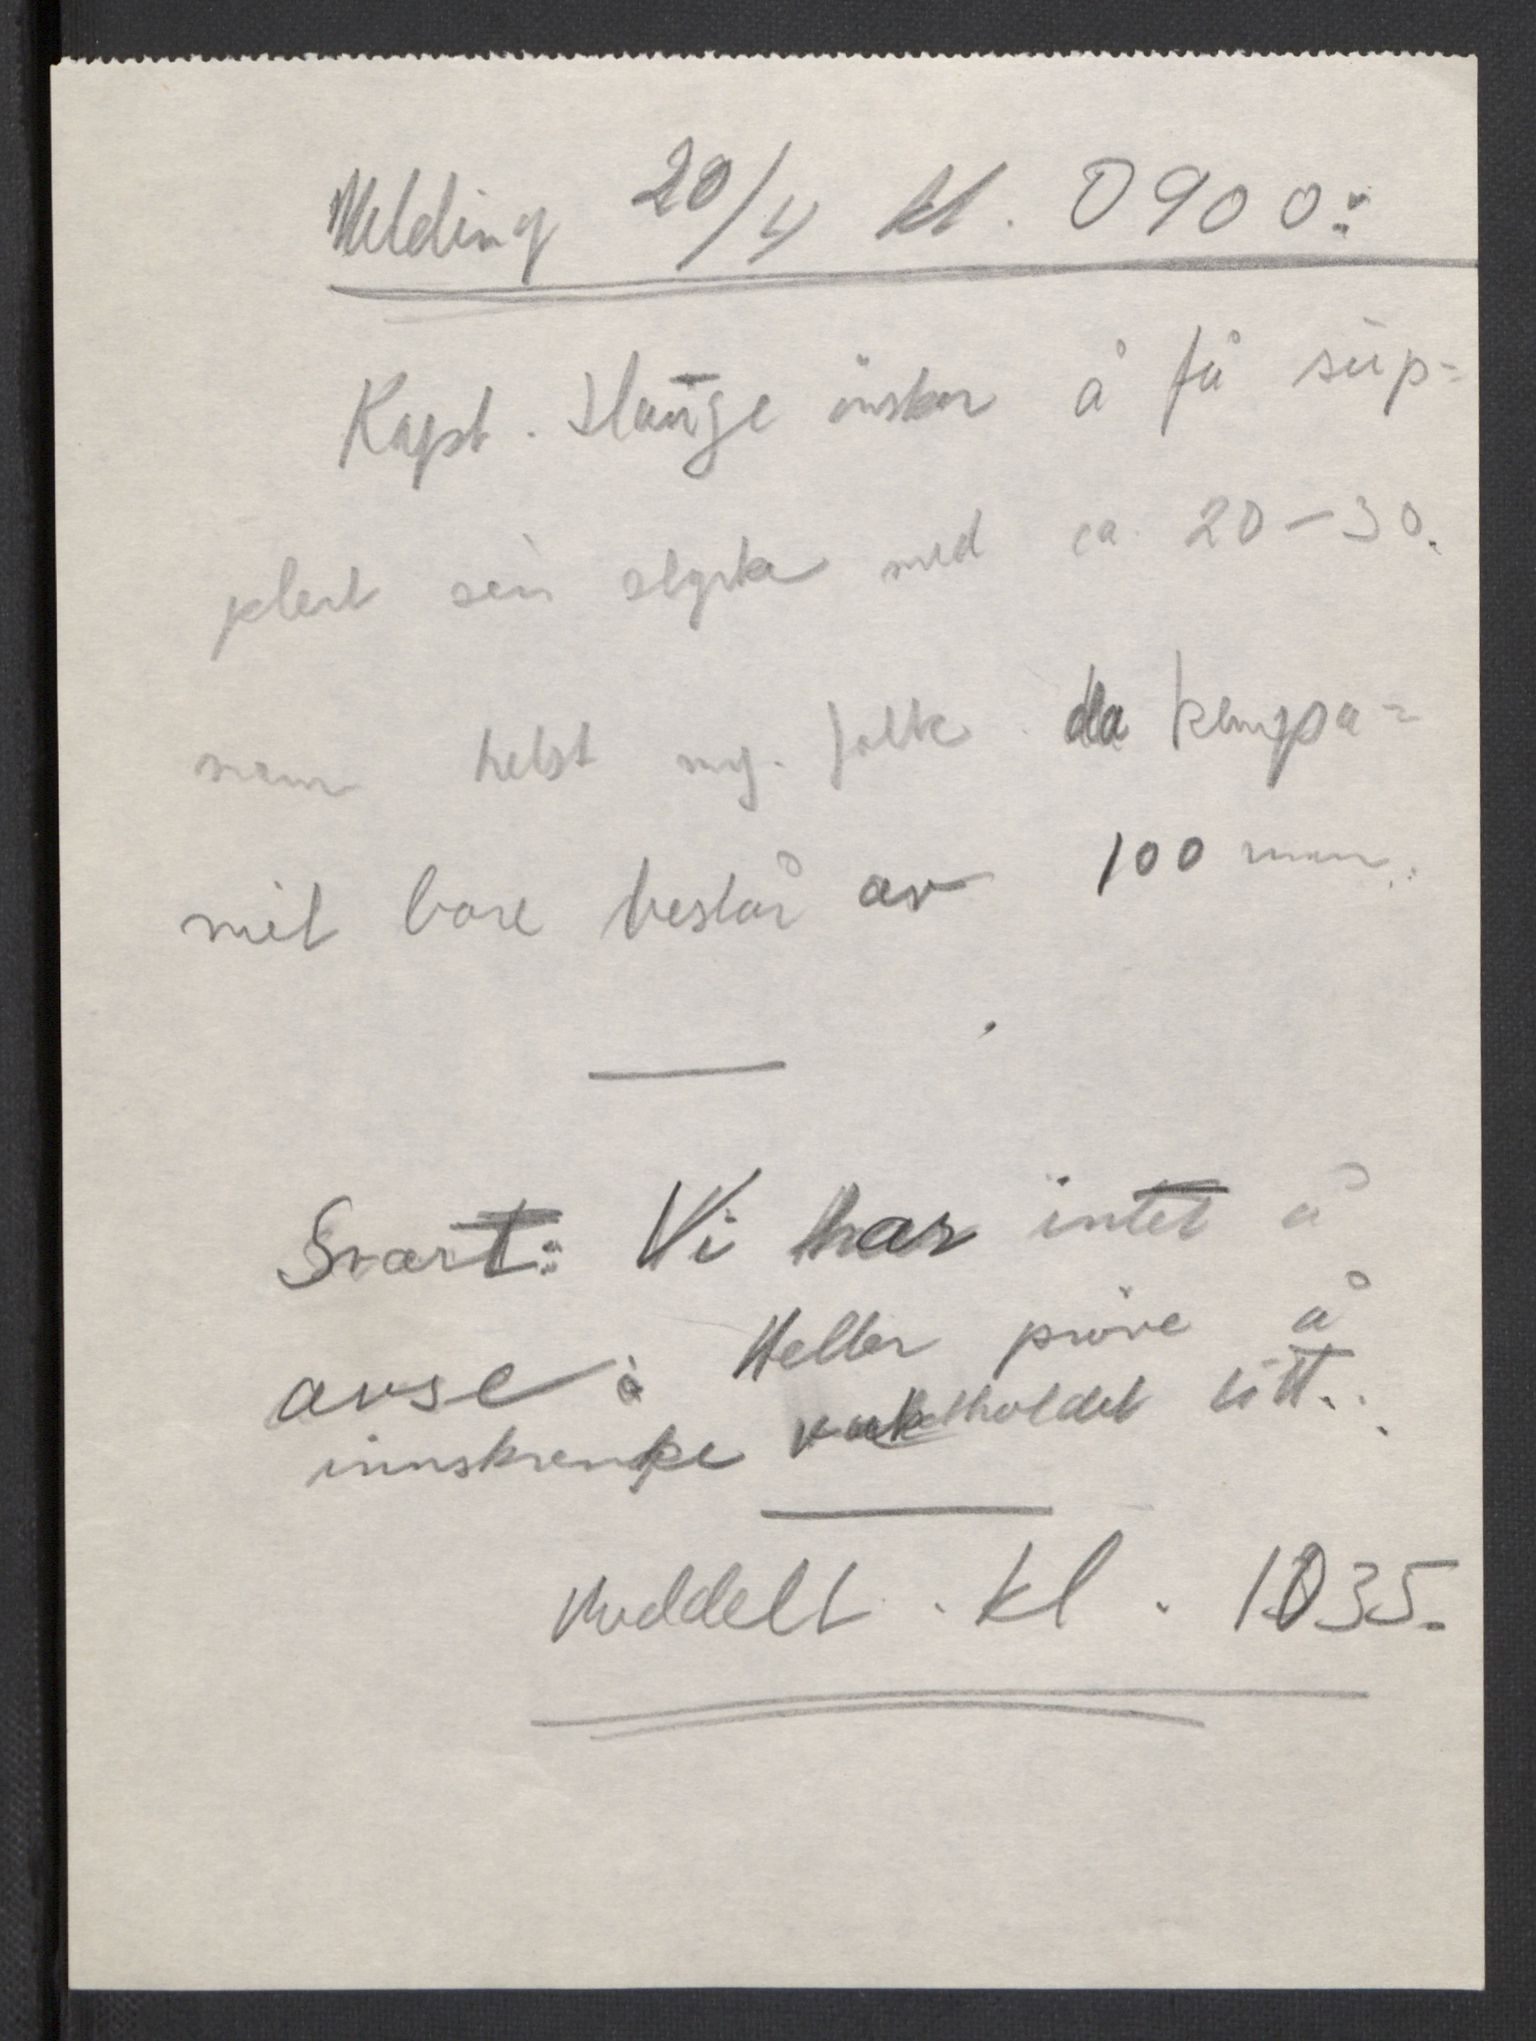 Melding 20/4 kl. 0900:
Kapt. Hauge önsker å få sup-
plert sin styrke med ca. 20-30.
mann helst ny. folk da kompa-
niet bare består av 100 mann.
Svart: Vi har intet å
avse: Heller pröve å
innskrenke vaktholdet litt.
Meddelt. kl. 1035.